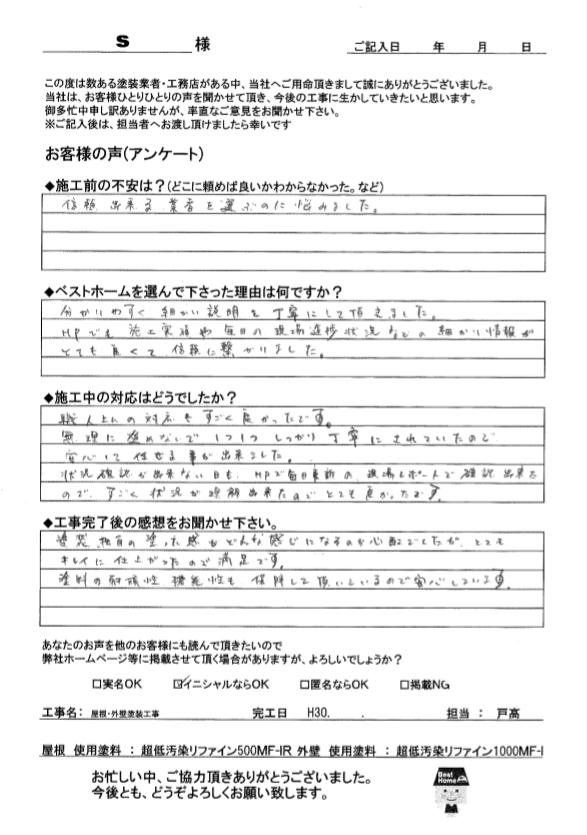 S 様
ご記入日 年 月 日
この度は数ある塗装業者・工務店がある中、当社へご用命頂きまして誠にありがとうございました。
当社は、お客様ひとりひとりの声を聞かせて頂き、今後の工事に生かしていきたいと思います。
御多忙中申し訳ありませんが、率直なご意見をお聞かせ下さい。
※ご記入後は、担当者へお渡し頂けましたら幸いです
お客様の声(アンケート)
◆施工前の不安は?(どこに頼めば良いかわからなかった。など)
信頼出来る業者を選ぶのに悩みました。
◆ベストホームを選んで下さった理由は何ですか?
分かりやすく細かい説明を丁寧にして頂きました。
HPでも施工実績や毎日の現場進捗状況などの細かい情報が
とても良くて信頼に繋がりました。
◆施工中の対応はどうでしたか?
職人さんの対応もすごく良かったです。
無理に進めないで1つ1つしっかり丁寧にされていたので
安心して任せる事が出来ました。
状況確認が出来ない日も、HPで毎日更新の現場レポートで確認出来た
ので、すごく状況が理解出来たのでとても良かったです。
◆工事完了後の感想をお聞かせ下さい。
塗装独自の塗った感もどんな感じになるのか心配でしたが、とても
キレイに仕上がったので満足です。
塗料の耐候性機能性も保障して頂いているので安心しています。
あなたのお声を他のお客様にも読んで頂きたいので
弊社ホームページ等に掲載させて頂く場合がありますが、よろしいでしょうか?
□実名OK ☑イニシャルならOK □匿名ならOK □掲載NG
工事名: 屋根・外壁塗装工事 完工日 H30. . 担当 : 戸高
屋根 使用塗料 : 超低汚染リファイン500MF-IR 外壁 使用塗料 : 超低汚染リファイン1000MF-I
お忙しい中、ご協力頂きありがとうございました。
今後とも、どうぞよろしくお願い致します。
Best Home